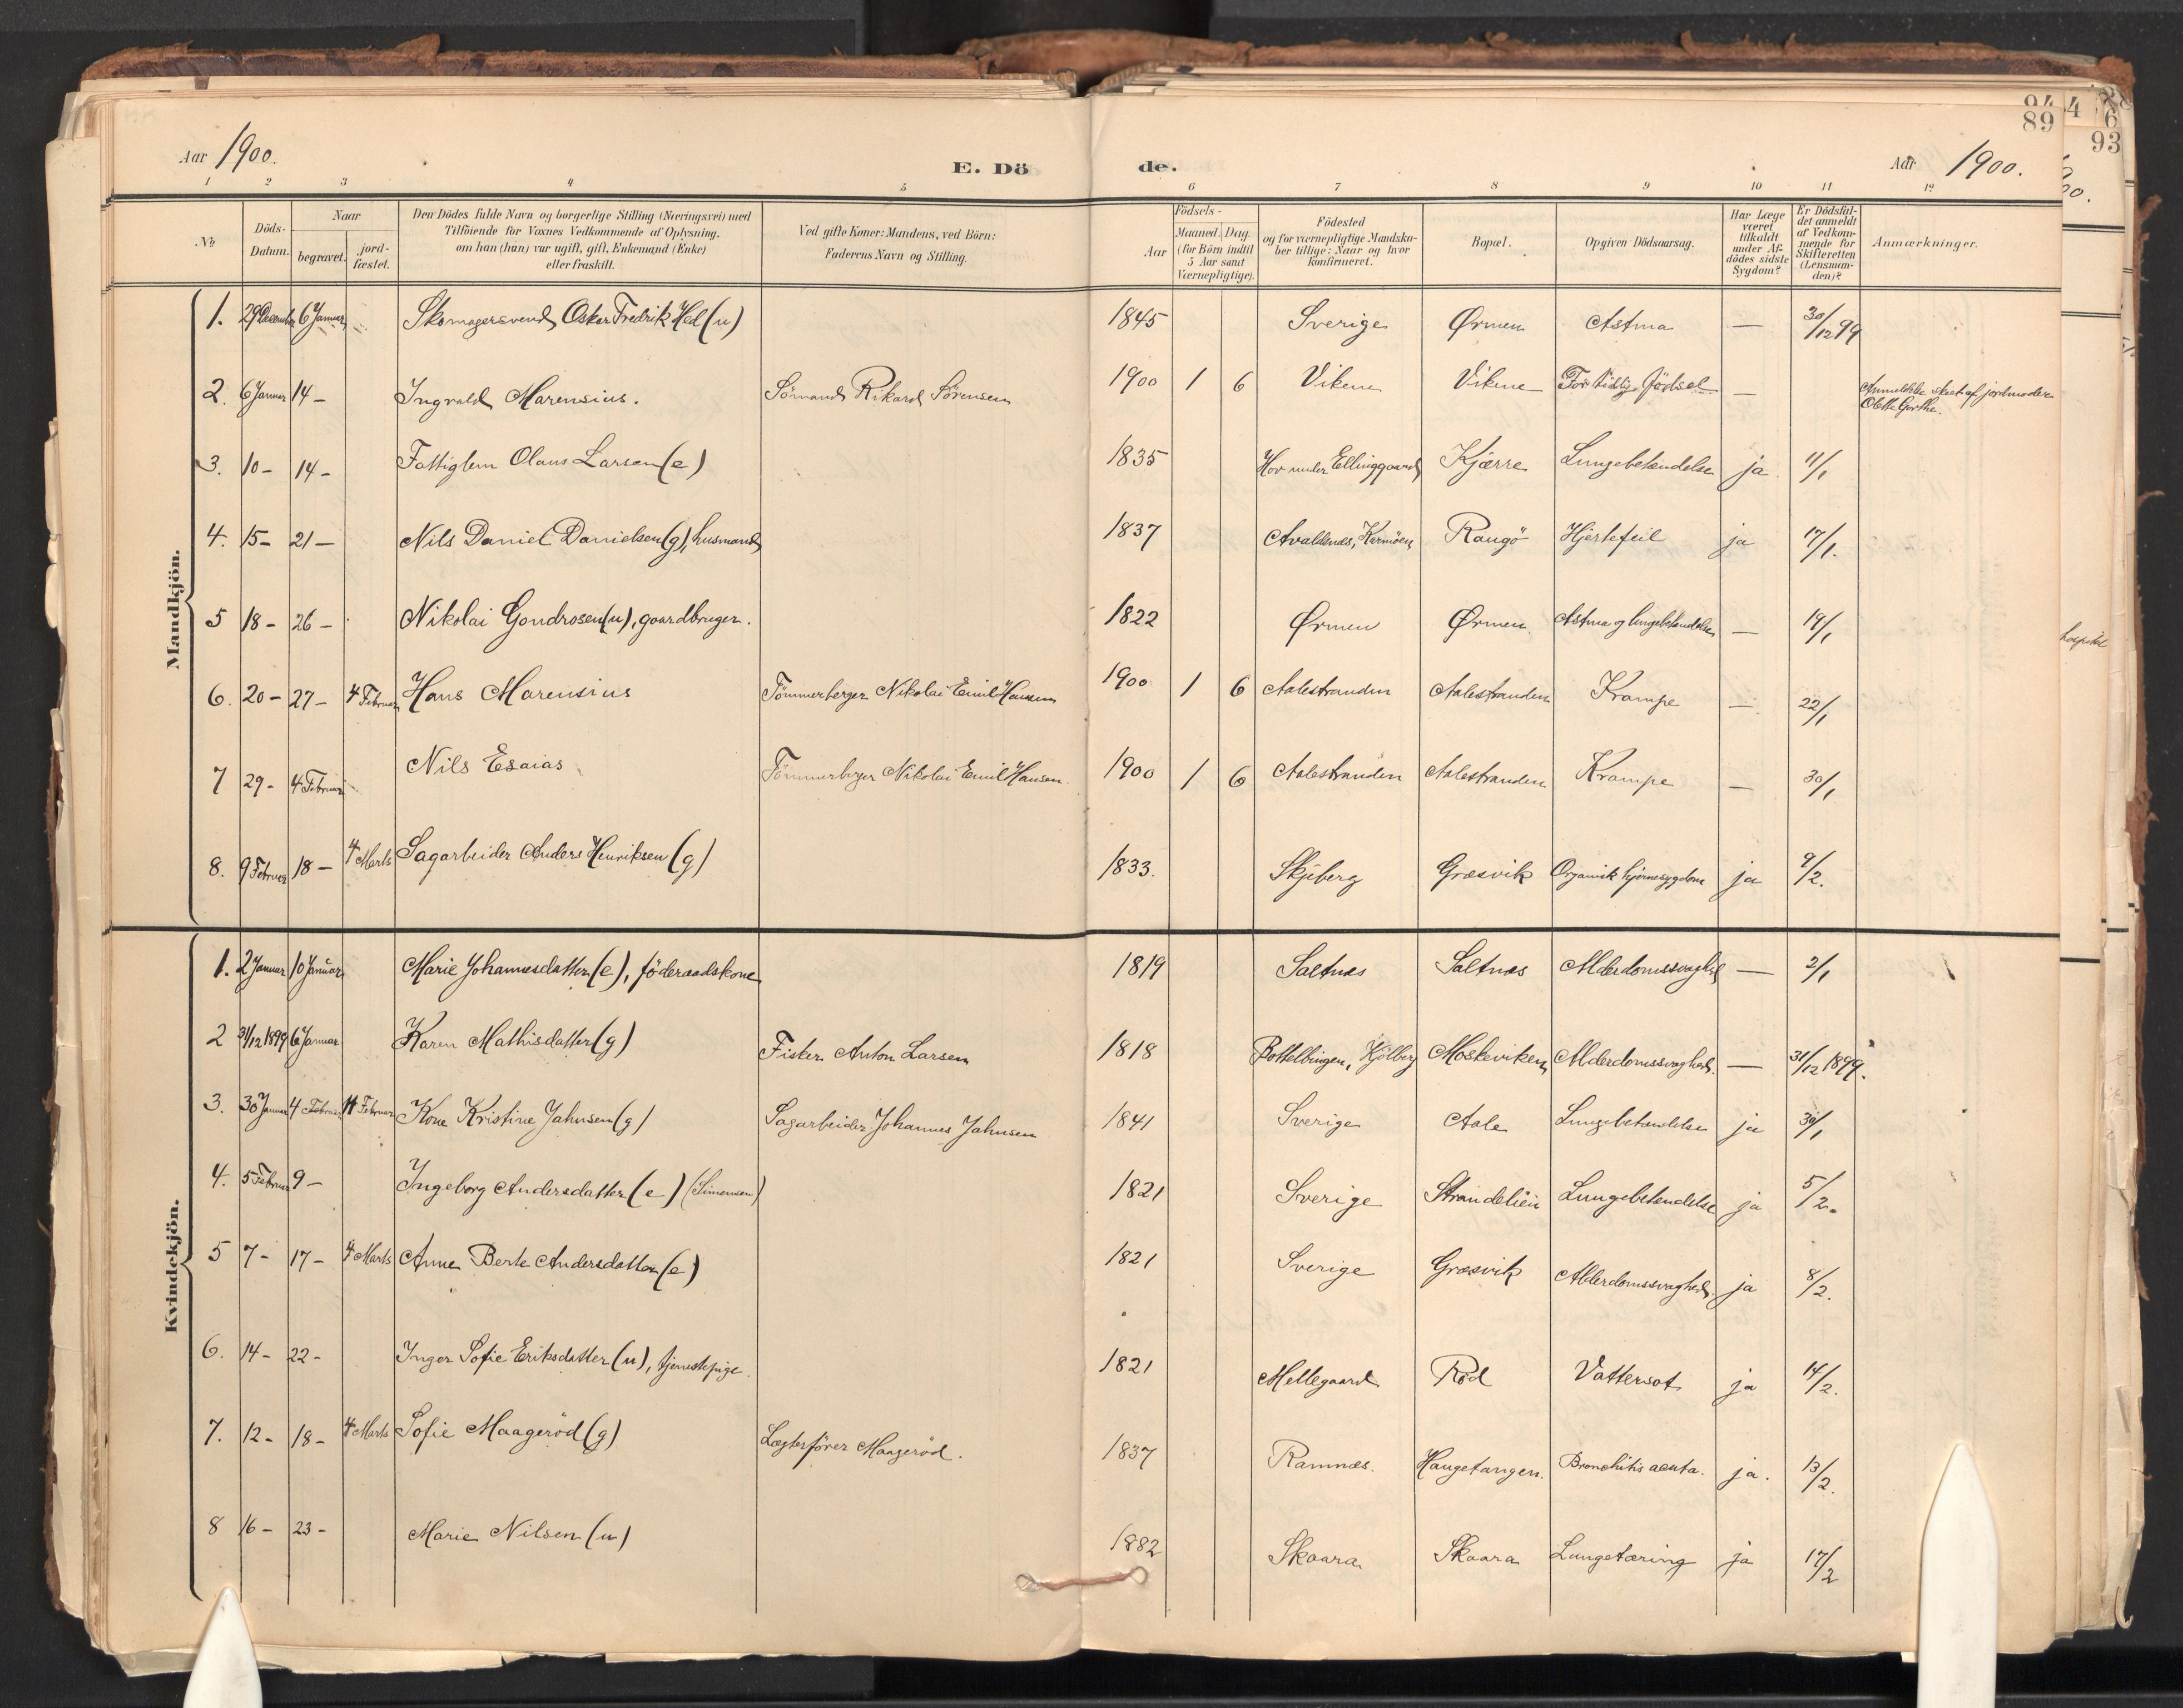 94
89
4
6
93
Aar 1900.
E. Dö
de.
Aar 1900.
1 2 3 4 5 6 7 8 9 10 11 12
№
Döds-
Datum.
Naar
begravet.
jord-
fæstet.
Den Dödes fulde Navn og borgerlige Stilling (Næringsvei) med
Tilföiende for Voxnes Vedkommende af Oplysning,
om han (hun) var ugift, gift, Enkemand (Enke)
eller fraskilt.
Ved gifte Koner: Mandens, ved Börn:
Faderens Navn og Stilling.
Födsels-
Aar
Maaned. Dag.
(for Börn indtil
5 Aar samt
Værnepligtige).
Födested
og for værnepligtige Mandska-
ber tillige: Naar og hvor
konfirmeret.
Bopæl.
Opgiven Dödsaarsag.
Har Læge
været
tilkaldt
under Af-
dödes sidste
Sygdom?
Er Dödsfal-
det anmeldt
af Vedkom-
mende for
Skifteretten
(Lensman-
den)?
Anmærkninger.
Mandkjön.
1. 29 December 6 Januar Skomagersvend Oskar Fredrik Hed (u) 1845 Sverige Ørmen Astma — 30/12 99
2. 6 Januar 14 – Ingvald Marensius. Sömand Rikard Sörensen 1900 1 6 Vikene Vikene For tidlig födsel — Anmeldelse skeet af jordmoder
Olette Grethe.
3. 10 – 14 – Fattiglem Olaus Larsen (e) 1835 Hov under Ellinggaard Kjærre Lungebetændelse ja 11/1
4. 15 – 21 – Nils Daniel Danielsen (g), husmand 1837 Avaldsnes, Karmöen Raugö Hjertefeil ja 17/1.
5 18 – 26 – Nikolai Gondrosen (u), gaardbruger. 1822 Ørmen Ørmen Astma og lungebetændelse — 19/1
6. 20 – 27 – 4 Februar Hans Marensius Tömmerberger Nikolai Emil Hansen 1900 1 6 Aalestranden Aalestranden Krampe — 22/1
7 29 – 4 Februar Nils Esaias Tömmerberger Nikolai Emil Hansen. 1900 1 6 Aalestranden Aalestranden Krampe — 30/1
8. 9 Februar 18 – 4 Marts Sagarbeider Anders Henriksen (g) 1833. Skjeberg Græsvik Organisk hjernesygdom ja 9/2.
Kvindekjön.
1. 2 Januar 10 Januar Marie Johannesdatter (e), föderaadskone 1819 Saltnæs Saltnæs Alderdomssvaghed — 2/1
2 31/12 1899 6 Januar Karen Mathisdatter (g) Fisker Anton Larsen 1818 Bottelbingen, Kjölberg Moskeviken Alderdomssvaghed. — 31/12 1899.
3. 30 Januar 4 Februar 11 Februar Kone Kristine Jahnsen (g) Sagarbeider Johannes Jahnsen 1841 Sverige Aale Lungebetændelse ja 30/1
4. 5 Februar 9 – Ingeborg Andersdatter (e) (Simensen) 1821 Sverige Strandelien Lungebetændelse ja 5/2.
5 7 – 17 – 4 Marts Anne Berte Andersdatter (e) 1821 Sverige Græsvik Alderdomssvaghed. ja 8/2.
6. 14 – 22 – Inger Sofie Eriksdatter (u), tjenestepige. 1821 Mellegaard Röd Vattersot ja 14/2.
7. 12 – 18 – 4 Marts Sofie Maageröd (g) Lægterförer Maageröd. 1837 Ramnæs. Haugetangen. Bronchitis acuta. ja. 13/2.
8 16 – 23 – Marie Nilsen (u) 1882 Skaara Skaara Lungetæring ja 17/2